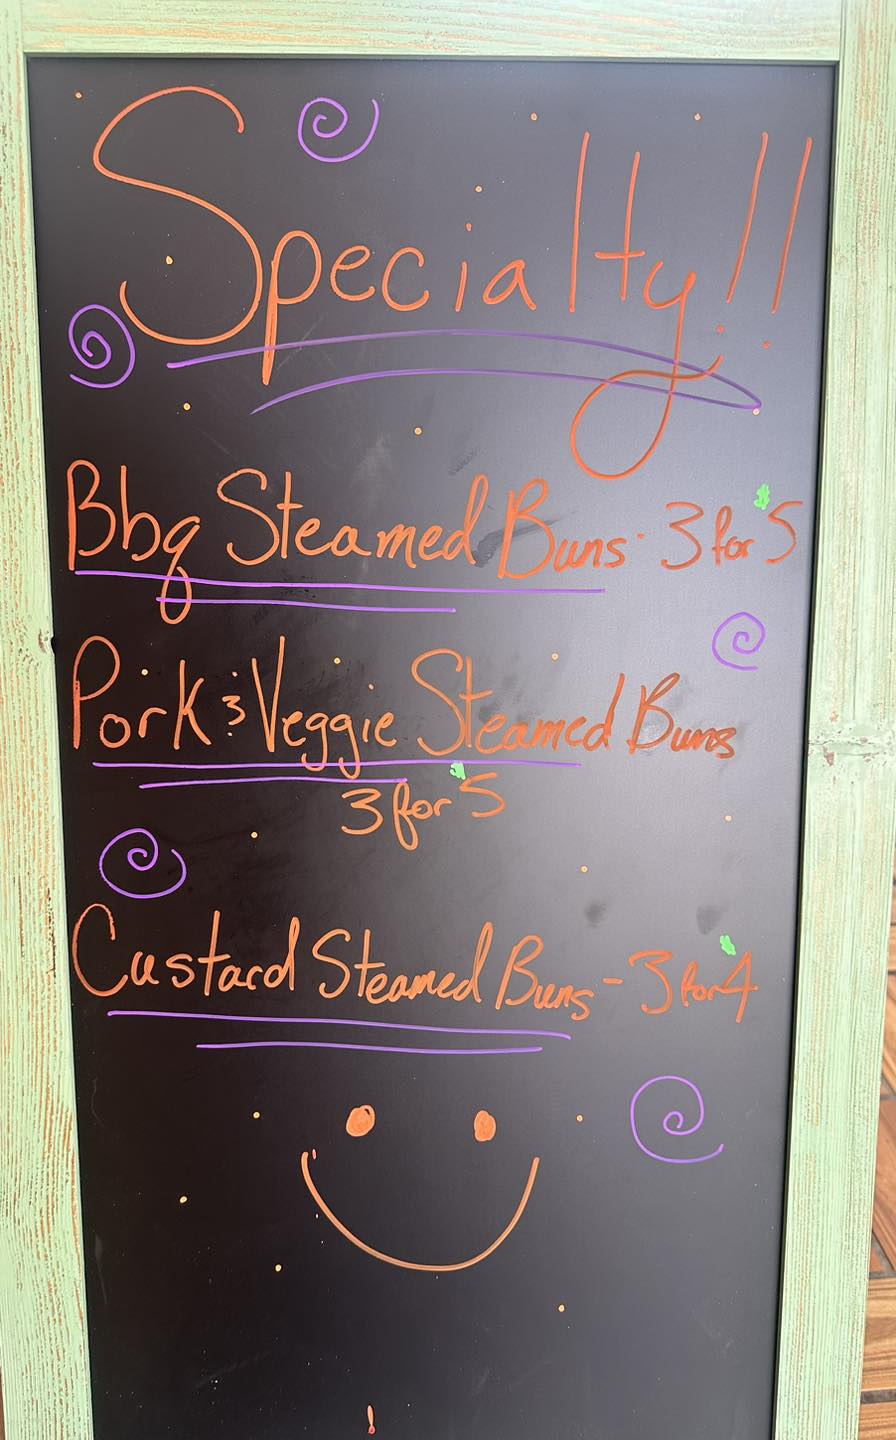 Specialty!!
Bbq Steamed Buns - 3 for $5
Pork & Veggie Steamed Buns
3 for $5
Custard Steamed Buns - 3 for $4